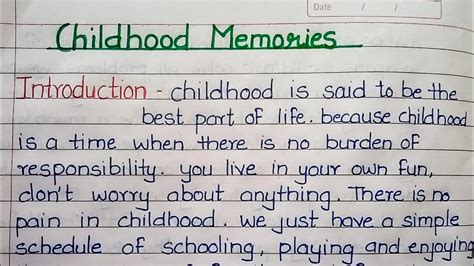 Date
Childhood Memories
Introduction - childhood is said to be the
best part of life. because childhood
is a time when there is no burden of
responsibility. you live in your own fun,
don't worry about anything. There is no
pain in childhood. we just have a simple
schedule of schooling, playing and enjoying